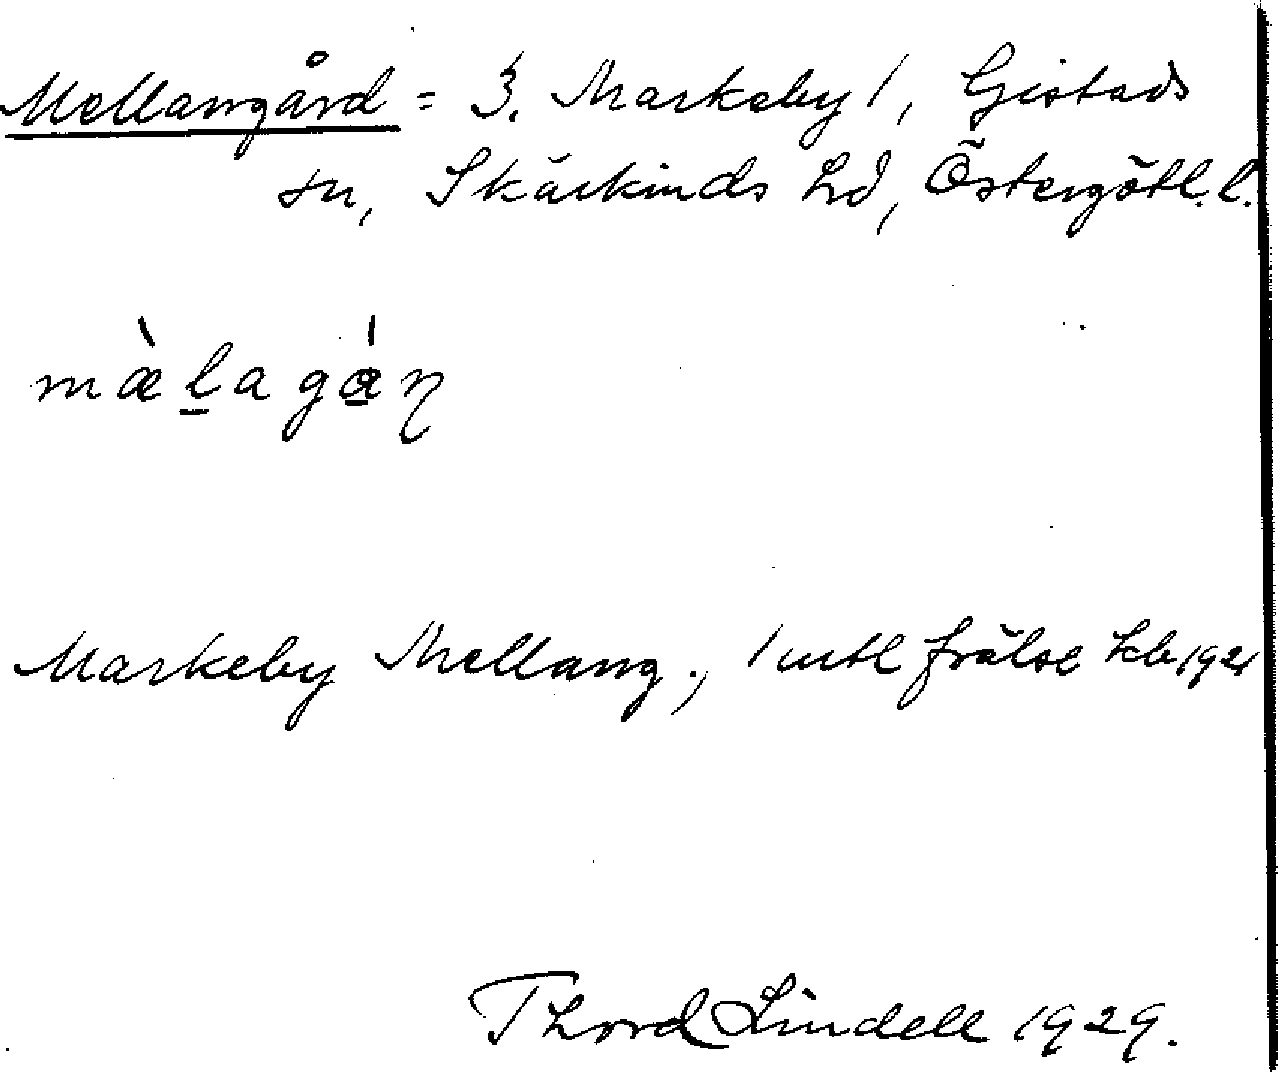 Mellangård = 3. Markeby 1, Gistads
sn, Skärkinds hd, Östergötl. l.
mæ̀lagán
Markeby Mellang., 1 mtl frälse Jb 1921
Thord Lindell 1929.